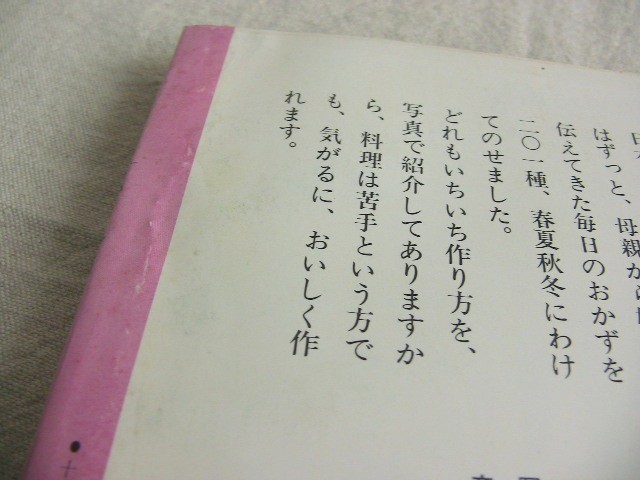 はずっと、母親から
伝えてきた毎日のおかずを
二〇一種、春夏秋冬にわけ
てのせました。
どれもいちいち作り方を、
写真で紹介してありますか
ら、料理は苦手という方で
も、気がるに、おいしく作
れます。